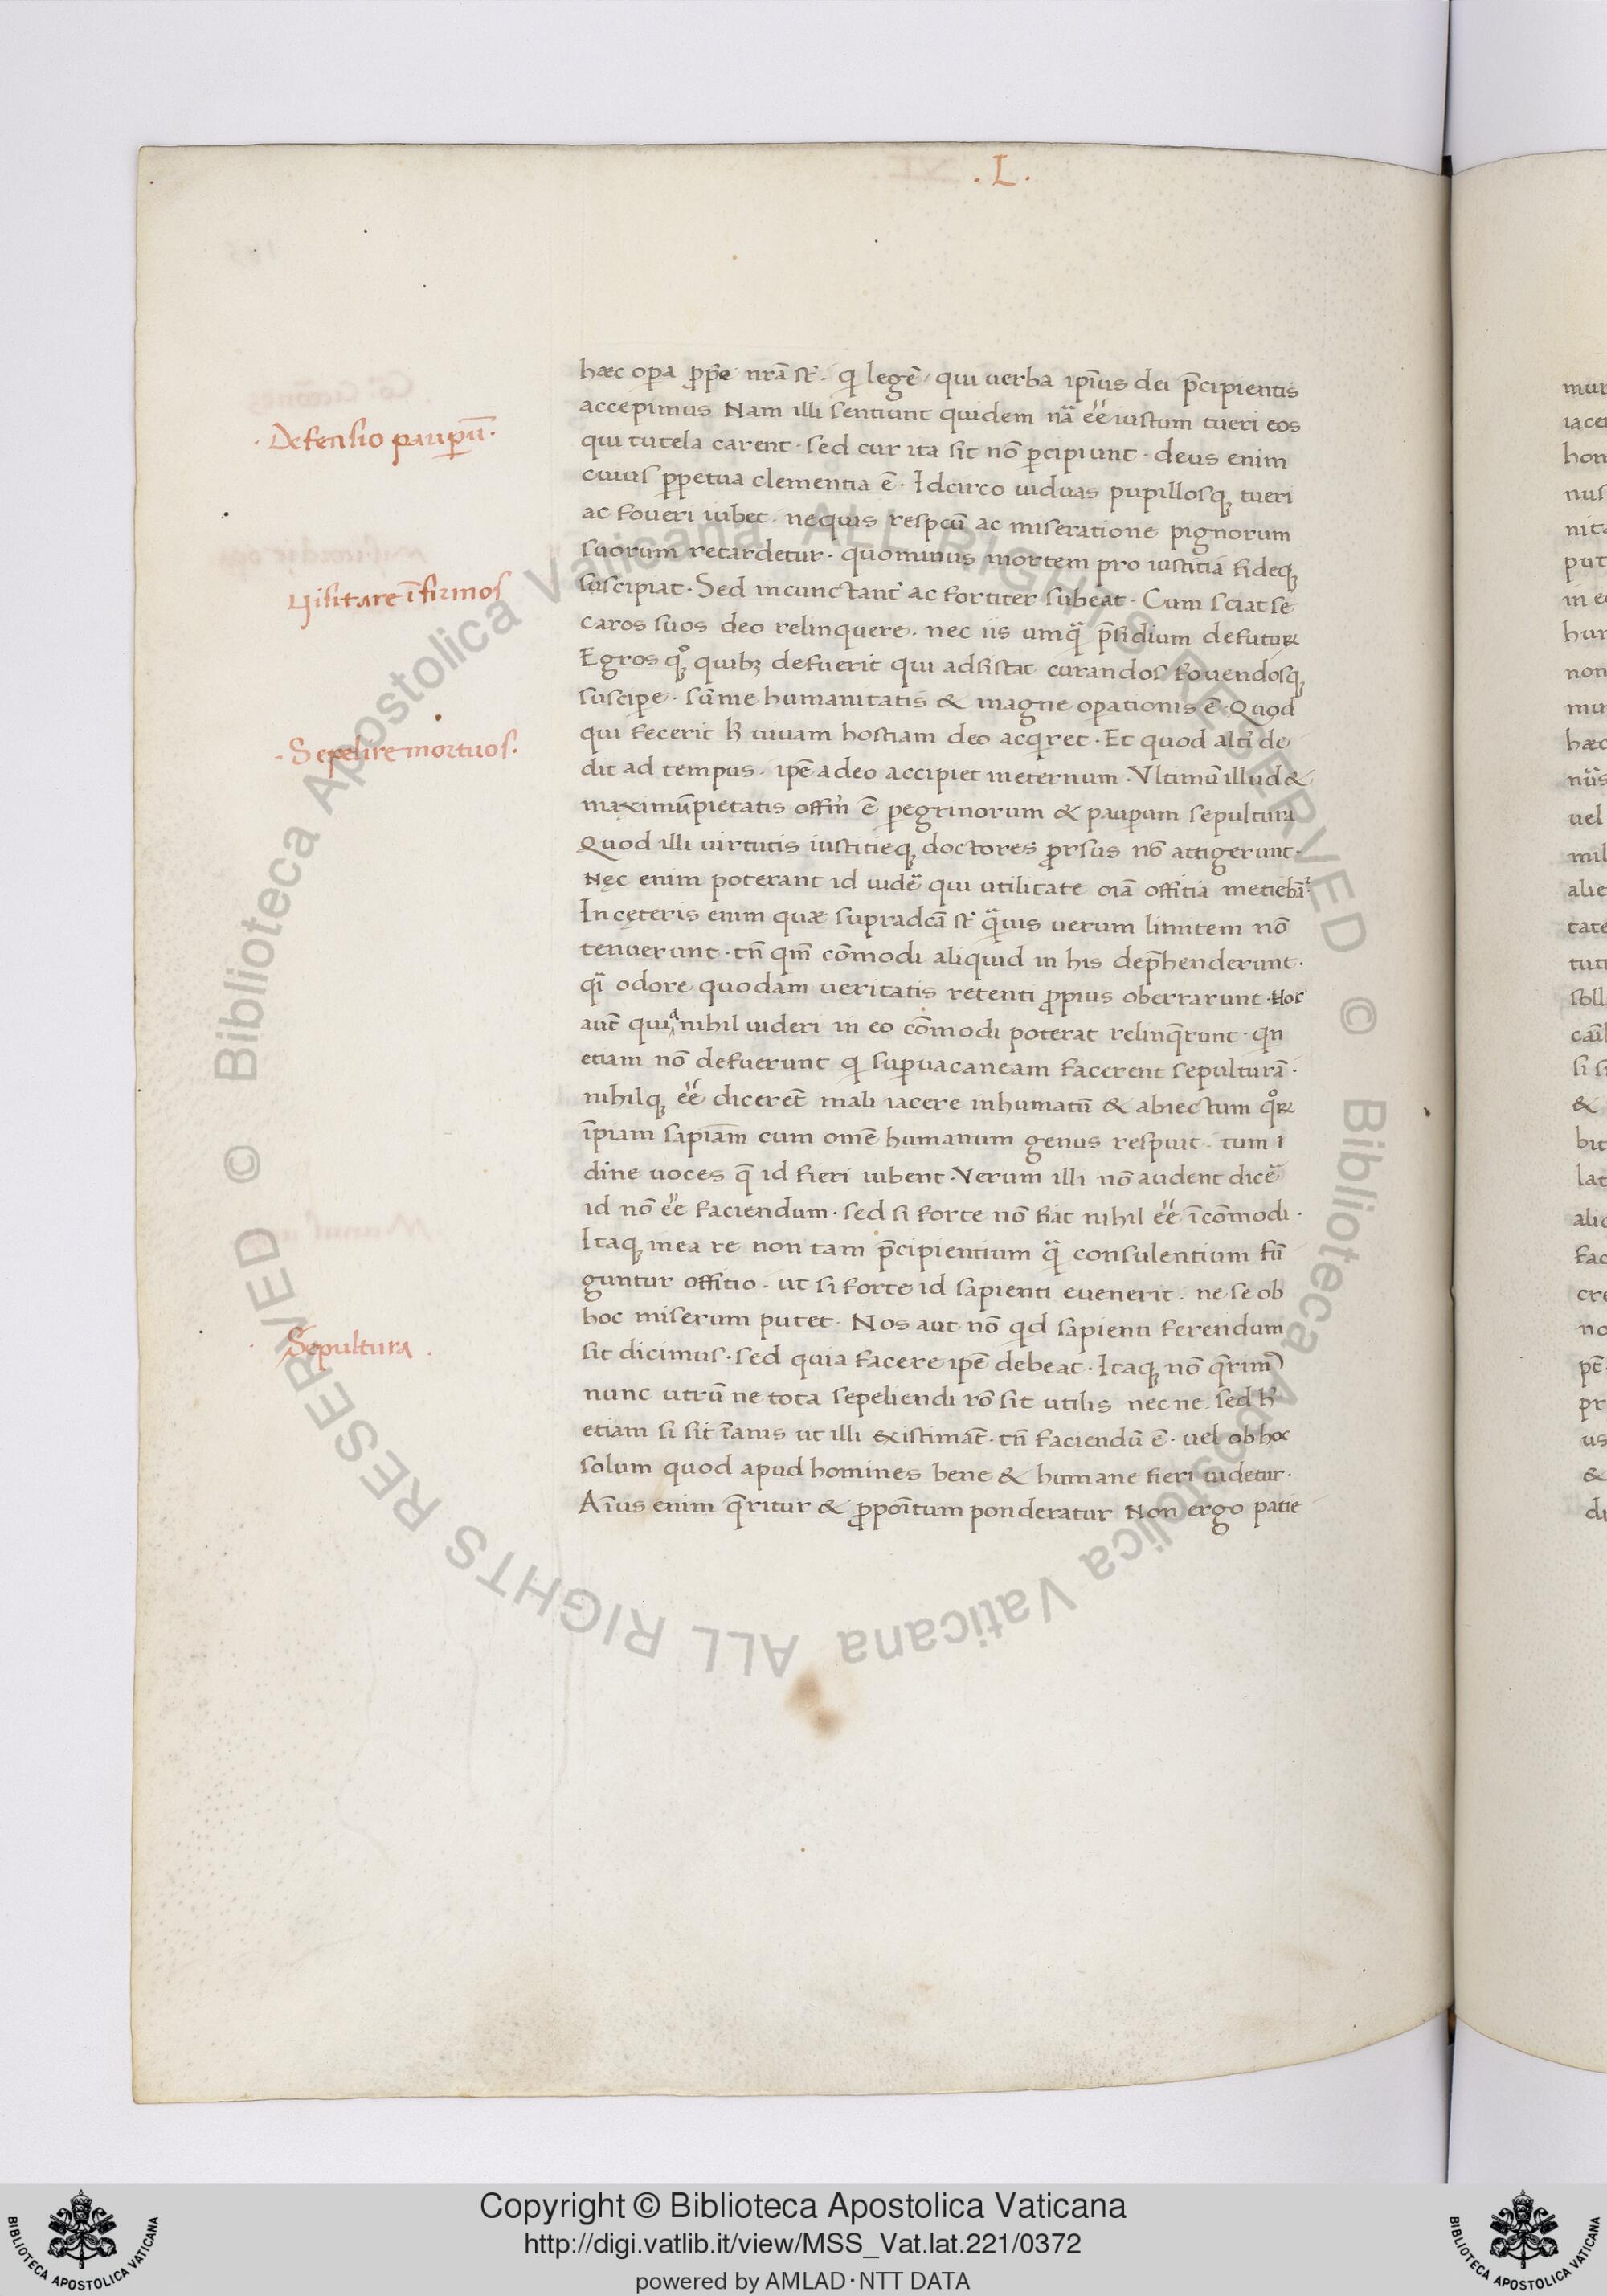 . L .
hæc oꝑa ꝓpͤe nr̄a st̄ . qͥ legē / qui uerba ipīus dei p̄cipientis
accepimus Nam illi sentiunt quidem nāͣ eē iustum tueri eos
. Defensio pauꝑū .
qui tutela carent . sed cur ita sit nō ꝑcipiunt . deus enim
cuius ꝑpetua clementia ē . Idcirco uiduas pupillosqꝫ tueri
ac foueri iubet . nequis respcū ac miseratione pignorum
suorum retardetur . quominus mortem pro iustitia fideqꝫ
Visitare īfirmos
suscipiat . Sed incunctant̄ ac fortiter subeat . Cum sciat se
caros suos deo relinquere . nec iis umqͣ p̄sidium defuturꝝ
Egros qꝫͦ quibꝫ defuerit qui adsistat curandos fouendosqꝫ
suscipe . sūme humanitatis & magne oꝑationis ē . Quod
qui fecerit h̄ uiuam hostiam deo acqͥret . Et quod altī de
. Sepelire mortuos .
dit ad tempus . ipē a deo accipiet ineternum . Vltimū illud &
maximū pietatis offiī ē ꝑegrinorum & pauꝑum sepultura
Quod illi uirtutis iustitieqꝫ doctores ꝓrsus nō attigerunt .
Nęc enim poterant id uidē qui utilitate oīa offitia metiebāt᷑
In cęteris enim quæ supradcā st̄ qͣuis uerum limitem nō
tenuerunt . tn̄ qm̄ cōmodi aliquid in his dep̄henderunt .
qͣi odore quodam ueritatis retenti ꝓpius oberrarunt . Hoc
aut̄ quia nihil uideri in eo cōmodi poterat relinq̄runt . qͥn
etiam nō defuerunt qͥ suꝑuacaneam facerent sepulturā .
nihilqꝫ eē dicerēt mali iacere inhumatū & abiectum qͦꝝ
īpiam sapiam̄ cum omē humanum genus respuit . tum i
dine uoces q̄ id fieri iubent . Verum illi nō audent dicē
id nō eē faciendum . sed si forte nō fiat nihil eē īcōmodi .
Itaqꝫ inea re non tam p̄cipientium qͣ consulentium fū
guntur offitio . ut si forte id sapienti euenerit . ne se ob
hoc miserum putet . Nos aut̄ nō qͥd sapienti ferendum
Sepultura .
sit dicimus . sed quia facere ipē debeat . Itaqꝫ nō q̄rimꝰ
nunc utrū ne tota sepeliendi rō sit utilis nec ne . sed h̄
etiam si sit īanis ut illi existimāt . tn̄ faciendū ē . uel ob hoc
solum quod apud homines bene & humane fieri uidetur .
Aīus enim q̄ritur & ꝓpoītum ponderatur Non ergo patie
Copyright © Biblioteca Apostolica Vaticana
http://digi.vatlib.it/view/MSS_Vat.lat.221/0372
powered by AMLAD·NTT DATA
BIBLIOTECA APOSTOLICA VATICANA
BIBLIOTECA APOSTOLICA VATICANA
© Biblioteca Apostolica Vaticana ALL RIGHTS RESERVED © Biblioteca Apostolica Vaticana ALL RIGHTS RESERVED